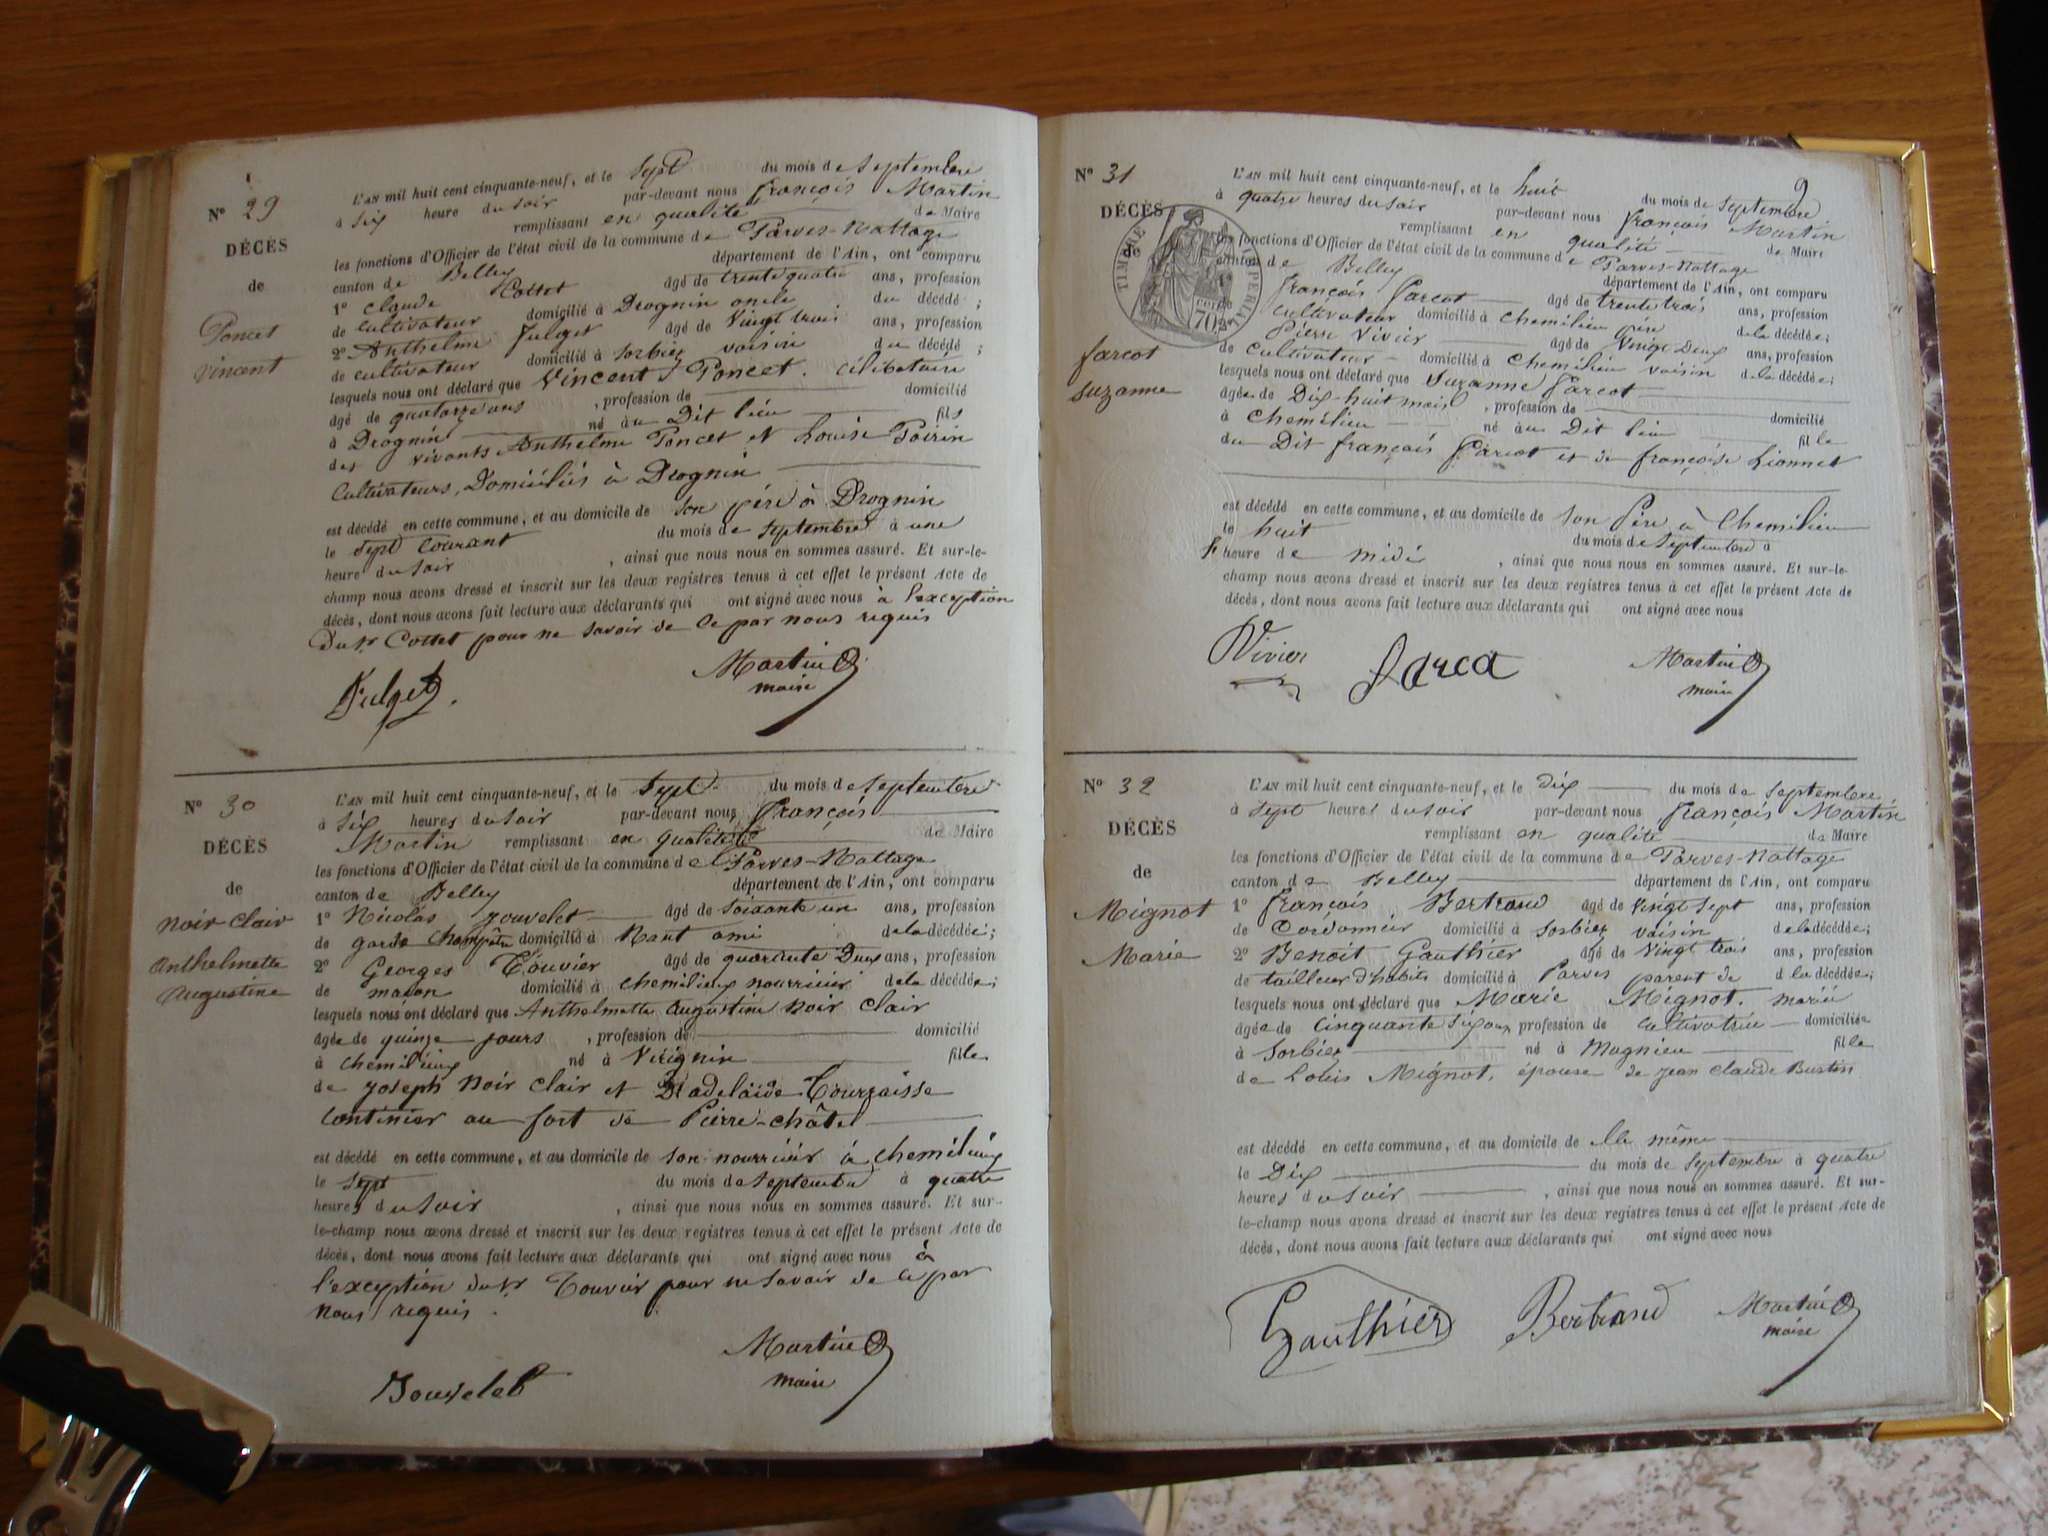 N° 29
DÉCÈS
de
Poncet
Vincent
L'AN mil huit cent cinquante-neuf, et le sept du mois de septembre
à six heure du soir par-devant nous françois Martin
remplissant en qualité de Maire
les fonctions d'Officier de l'état civil de la commune de Parves-Nattage
canton de Belley département de l'Ain, ont comparu
1° Claude Cottet âgé de trente quatre ans, profession
de cultivateur domicilié à Drognin oncle du décédé ;
2° Anthelme Fulget âgé de vingt trois ans, profession
de cultivateur domicilié à Sorbier voisin du décédé ;
lesquels nous ont déclaré que Vincent Poncet. célibataire
âgé de quatorze ans , profession de domicilié
à Drognin né au Dit lieu fils
des vivants Anthelme Poncet et Louise Poirin
Cultivateurs, Domiciliés à Drognin
est décédé en cette commune, et au domicile de son père à Drognin
le sept Courant du mois de septembre à une
heure du soir , ainsi que nous nous en sommes assuré. Et sur-le-
champ nous avons dressé et inscrit sur les deux registres tenus à cet effet le présent Acte de
décès, dont nous avons fait lecture aux déclarants qui ont signé avec nous à l'exception
Du sr Cottet pour ne savoir de ce par nous requis
Fulget
Martin
maire
N° 30
DÉCÈS
de
Noir Clair
Anthelmette
Augustine
L'AN mil huit cent cinquante-neuf, et le sept du mois de septembre
à six heures du soir par-devant nous françois
Martin remplissant en qualité de Maire
les fonctions d'Officier de l'état civil de la commune de Parves-Nattage
canton de Belley département de l'Ain, ont comparu
1° Nicolas Jouvelet âgé de soixante un ans, profession
de garde champêtre domicilié à Nant ami de la décédée ;
2° Georges Touvier âgé de quarante Deux ans, profession
de maçon domicilié à chemilieu nourricier de la décédée ;
lesquels nous ont déclaré que Anthelmette Augustine Noir Clair
âgée de quinze jours , profession de domicilié
à chemilieu né à Virignin fille
de Joseph Noir Clair et D'adelaïde Tourraisse
Continier au fort de Pierre-châtel
est décédé en cette commune, et au domicile de son nourricier à chemilieu
le sept du mois de septembre à quatre
heures du soir , ainsi que nous nous en sommes assuré. Et sur-
le-champ nous avons dressé et inscrit sur les deux registres tenus à cet effet le présent Acte de
décès, dont nous avons fait lecture aux déclarants qui ont signé avec nous à
l'exception du sr Touvier pour ne savoir de ce par
nous requis.
Jouvelet
Martin
maire
9
N° 31
DÉCÈS
de
farcot
suzanne
TIMBRE IMPERIAL
70
L'AN mil huit cent cinquante-neuf, et le huit du mois de septembre
à quatre heures du soir par-devant nous françois Martin
remplissant en qualité de Maire
les fonctions d'Officier de l'état civil de la commune de Parves-Nattage
canton de Belley département de l'Ain, ont comparu
François Farcot âgé de trente trois ans, profession
cultivateur domicilié à chemilieu père de la décédée ;
Pierre Vivier âgé de Vingt Deux ans, profession
de cultivateur domicilié à chemilieu voisin de la décédée ;
lesquels nous ont déclaré que Suzanne Farcot
âgée de Dix-huit mois , profession de domicilié
à Chemilieu né au Dit lieu fille
du Dit françois Farcot et de françoise Lionnet
est décédé en cette commune, et au domicile de son Père à Chemilieu
le huit du mois de septembre à
heure de midi , ainsi que nous nous en sommes assuré. Et sur-le-
champ nous avons dressé et inscrit sur les deux registres tenus à cet effet le présent Acte de
décès, dont nous avons fait lecture aux déclarants qui ont signé avec nous
Vivier
Farca
Martin
maire
N° 32
DÉCÈS
de
Mignot
Marie
L'AN mil huit cent cinquante-neuf, et le Dix du mois de septembre
à sept heures du soir par-devant nous françois Martin
remplissant en qualité de Maire
les fonctions d'Officier de l'état civil de la commune de Parves-Nattage
canton de Belley département de l'Ain, ont comparu
1° françois Bertrand âgé de vingt sept ans, profession
de Cordonnier domicilié à Sorbier voisin de la décédée ;
2° Benoit Gauthier âgé de vingt trois ans, profession
de tailleur d'habits domicilié à Parves parent de d la décédée ;
lesquels nous ont déclaré que Marie Mignot. mariée
âgée de Cinquante six ans profession de cultivatrice domiciliée
à Sorbier né à Magnieu fille
de Louis Mignot, épouse de Jean Claude Bustin
est décédé en cette commune, et au domicile de Elle même
le Dix du mois de septembre à quatre
heures du soir , ainsi que nous nous en sommes assuré. Et sur-
le-champ nous avons dressé et inscrit sur les deux registres tenus à cet effet le présent Acte de
décès, dont nous avons fait lecture aux déclarants qui ont signé avec nous
Gauthier
Bertrand
Martin
maire